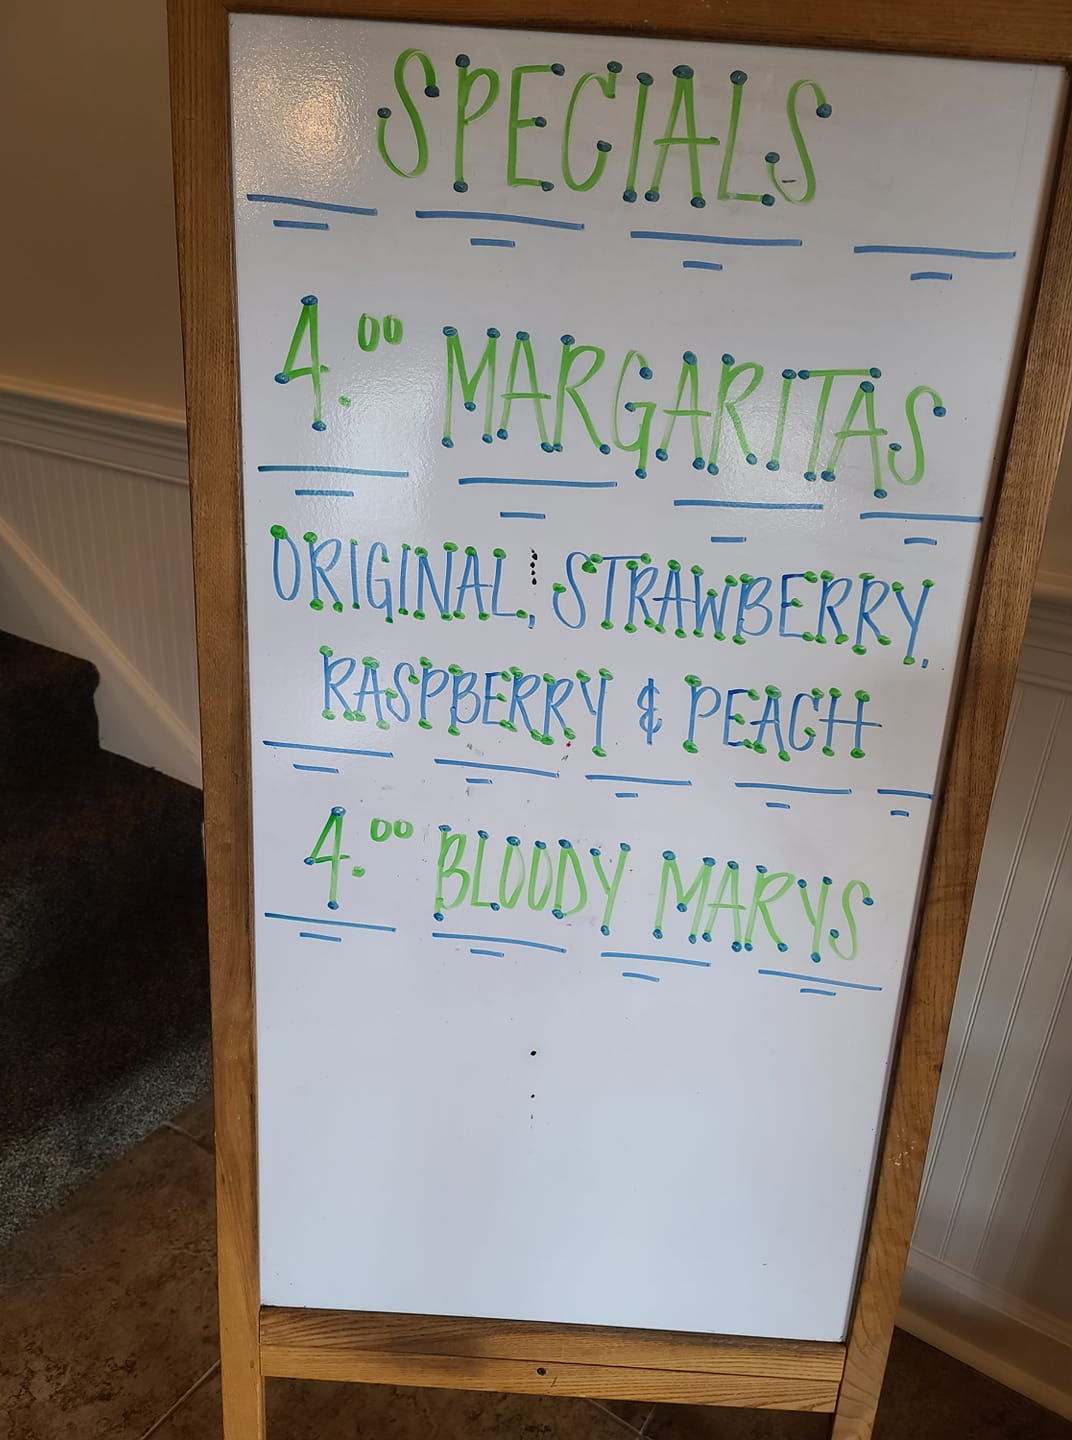 SPECIALS
4.00 MARGARITAS
ORIGINAL, STRAWBERRY,
RASPBERRY & PEACH
4.00 BLOODY MARYS